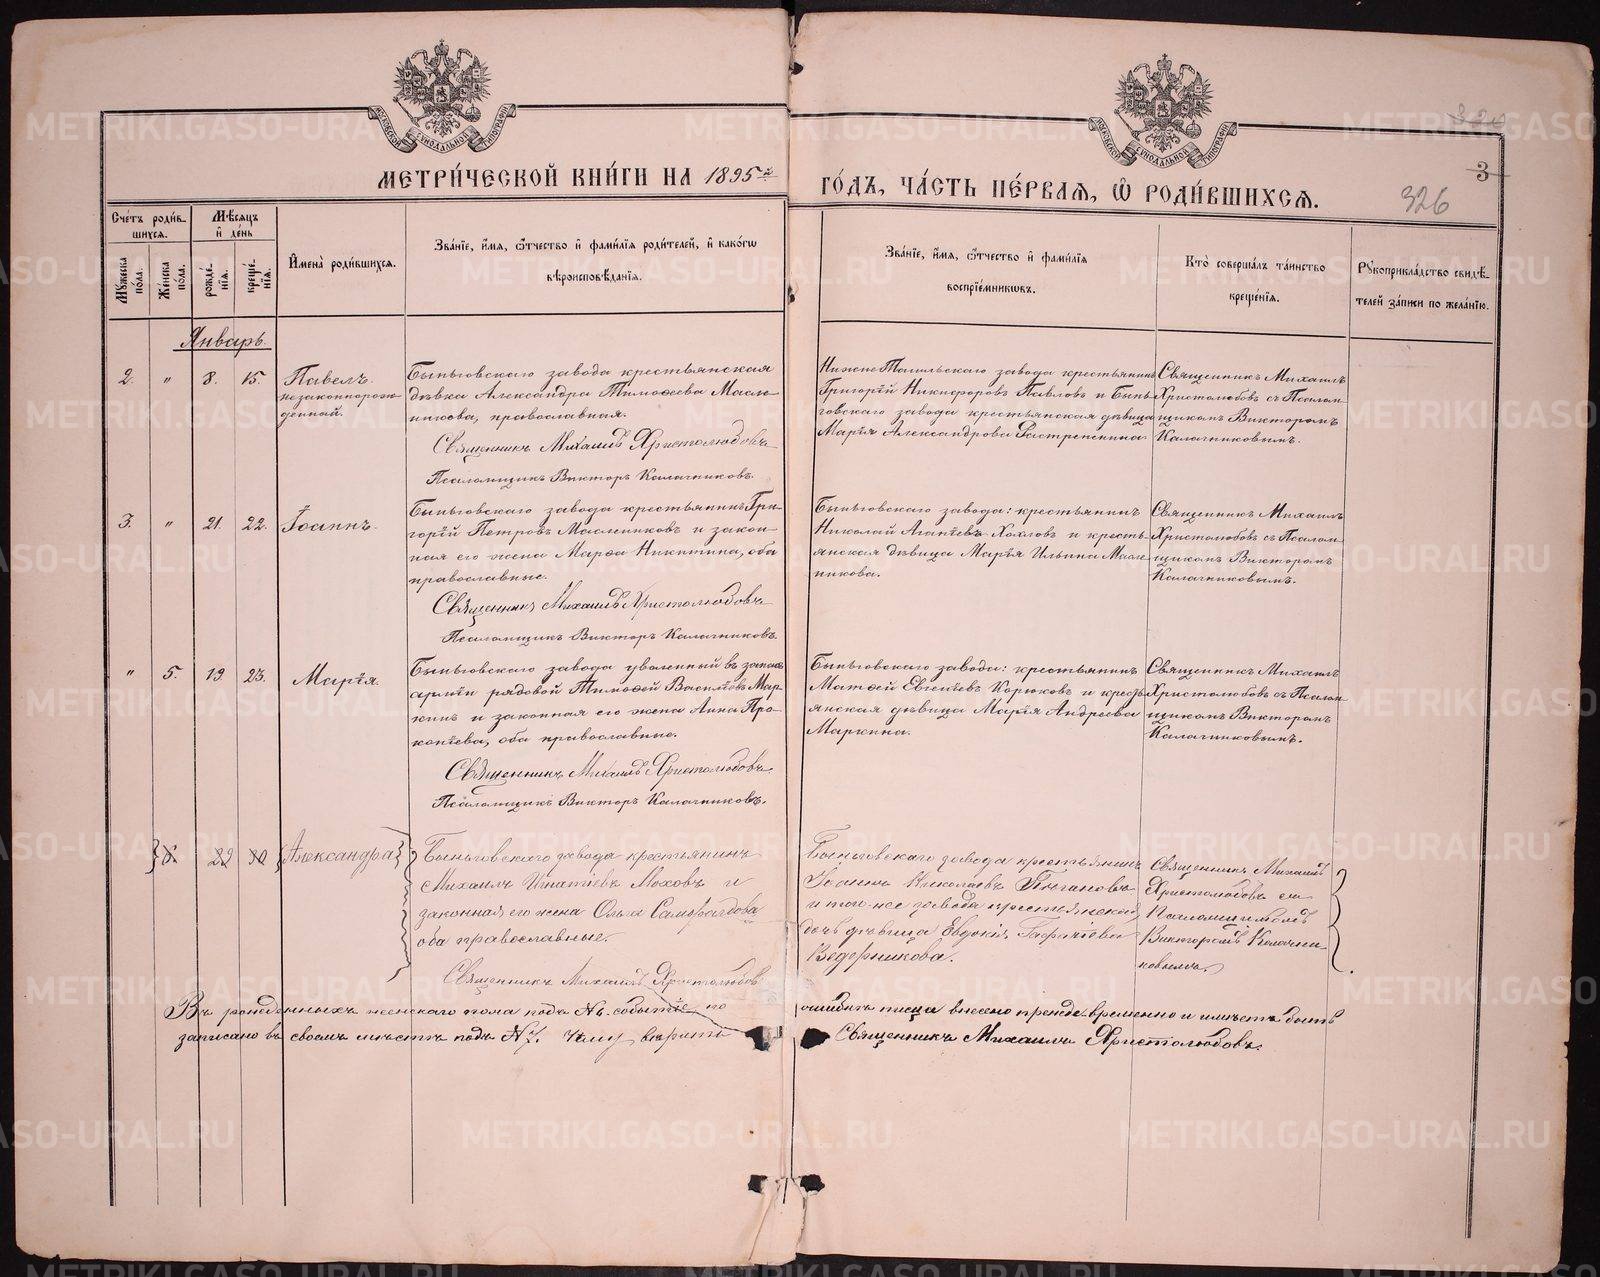 МЕТРИ́ЧЕСКОЙ КНИ́ГИ НА 1895й
ГО́ДЪ, ЧА́СТЬ ПЕ́РВАѦ, Ѡ҆ РОДИ́ВШИХСѦ.
3
326
Сче́тъ роди́в-
шихсѧ.
Мѣ́сѧцъ
и҆ де́нь
Мꙋ́жеска
по́ла.
Же́нска
по́ла.
рожде́-
нїѧ.
креще́-
нїѧ.
И҆мена̀ роди́вшихсѧ.
Зва́нїе, и҆́мѧ, ѻ҆́тчество и҆ фами́лїѧ роди́телей, и҆ како́гѡ
вѣроисповѣ́данїѧ.
Зва́нїе, и҆́мѧ, ѻ҆́тчество и҆ фами́лїѧ
воспрїе́мникѡвъ.
Кто̀ соверша́лъ та́инство
креще́нїѧ.
Рꙋкоприкла́дство свидѣ́-
телей за́писи по жела́нїю.
Январь.
2. " 8. 15. Павелъ.
незаконнорож-
денный.
Быньговскаго завода крестьянская
дѣвка Александра Тимоѳеева Масле-
никова, православная.
Священникъ Михаилъ Христолюбовъ
Псаломщикъ Викторъ Калачниковъ.
НижнеТагильскаго завода крестьянинъ
Григорій Никифоровъ Павловъ и Бынь-
говскаго завода крестьянская дѣвица
Марія Александрова
Священникъ Михаилъ
Христолюбовъ съ Псалом-
щикомъ Викторомъ
Калачниковымъ.
3. " 21. 22. Іоаннъ.
Быньговскаго завода крестьянинъ Гри-
горій Петровъ Маслениковъ и закон-
ная его жена Марѳа Никитина, оба
православные.
Священникъ Михаилъ Христолюбовъ
Псаломщикъ Викторъ Калачниковъ.
Быньговскаго завода: крестьянинъ
Николай Агапіевъ Хохловъ и кресть-
янская дѣвица Марія Ильина Масле-
никова.
Священникъ Михаилъ
Христолюбовъ съ Псалом-
щикомъ Викторомъ
Калачниковымъ.
" 5. 19 23. Марія.
Быньговскаго завода уволенный въ запасъ
арміи рядовой Тимоѳей Василіевъ Мар-
кинъ и законная его жена Анна Про-
копіева, оба православные.
Священникъ Михаилъ Христолюбовъ
Псаломщикъ Викторъ Калачниковъ.
Быньговскаго завода: крестьянинъ
Матѳей Евгеніевъ Корюковъ и кресть-
янская дѣвица Марія Андреева
Маркина.
Священникъ Михаилъ
Христолюбовъ съ Псалом-
щикомъ Викторомъ
Калачниковымъ.
22 Александра
Быньговскаго завода крестьянинъ
Михаилъ Игнатіевъ Моховъ и
законная его жена Ольга
оба православные.
Священникъ Михаилъ Христолюбовъ
Быньговскаго завода крестьянинъ
Іоаннъ Николаевъ
и того-же завода крестьянская
дочь дѣвица Евдокія
Ведерникова.
Священникъ Михаилъ
Христолюбовъ съ
Псаломщикомъ
Викторомъ Калачни-
ковымъ.
Въ рожденныхъ женскаго пола подъ № 6. событіе по ошибкѣ писца внесено преждевременно и имѣетъ быть
записано въ своемъ мѣстѣ подъ № 7. Чему вѣрить Священникъ Михаилъ Христолюбовъ.
METRIKI.GASO-URAL.RU